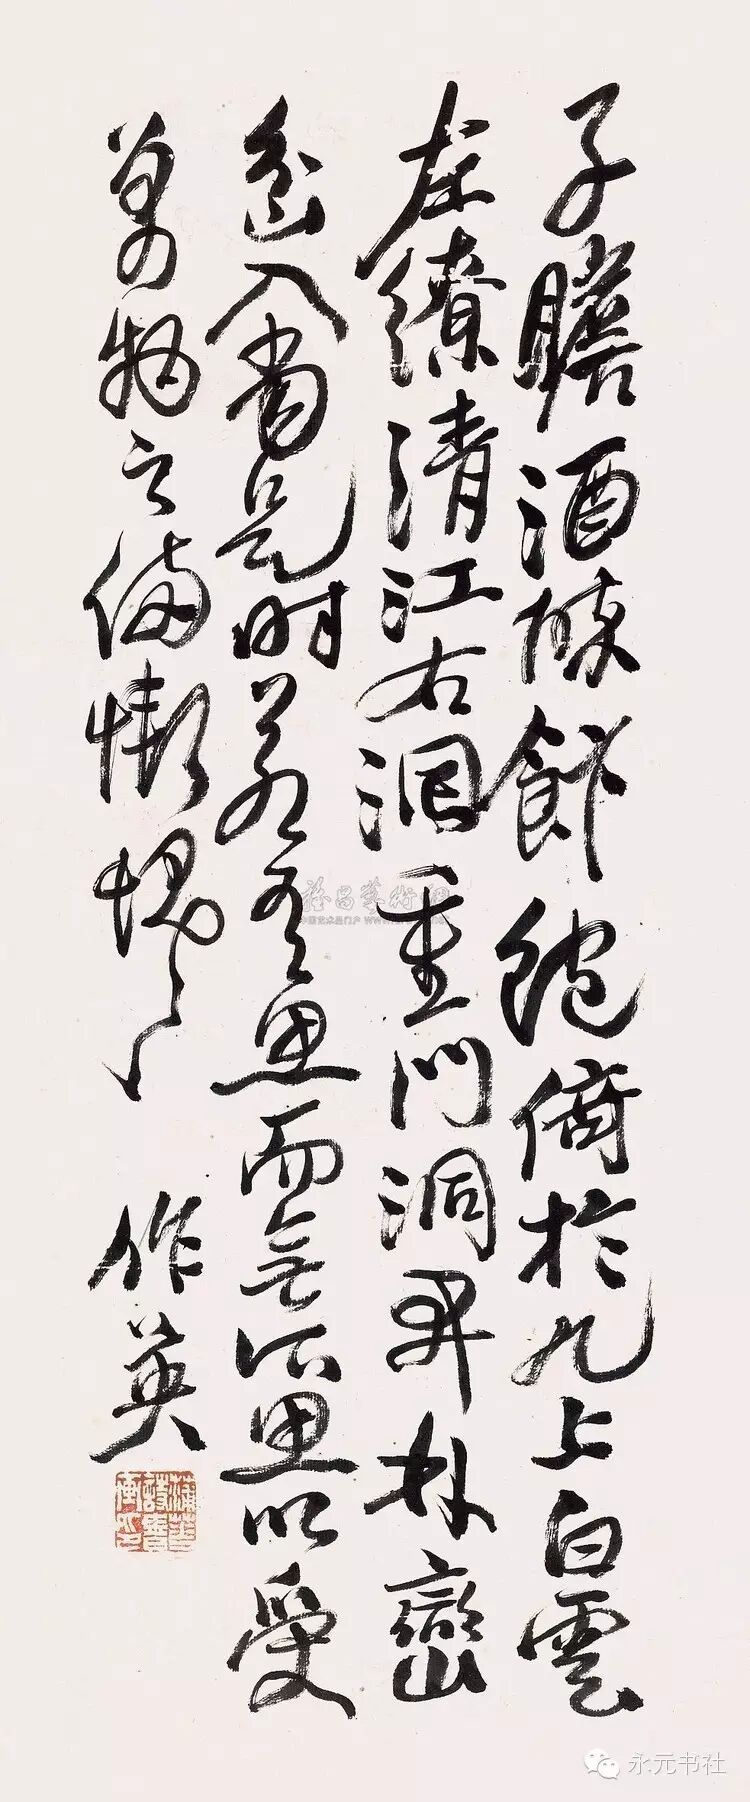 子瞻酒醉飰飽倚於几上白雲
左繚清江右洄重門洞開林巒
坌入當是時若有思而無所思以受
萬物之備慚愧々 作英
雅昌藝術網
永元书社